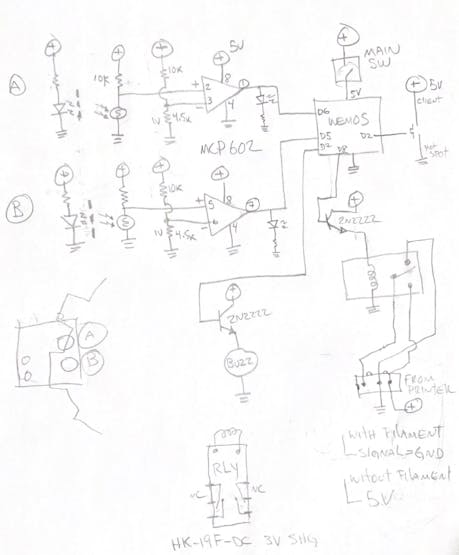 +
5V
MAIN
SW
A
10K
10K
+
2
8
1
3
4
1V
4.5K
MCP602
5V
D6
WEMOS
D5
D2
D7
D8
5V
CLIENT
HOT
SPOT
B
10K
+
5
8
7
6
4
1V
4.5K
2N2222
2N2222
BUZZ
A
B
FROM
PRINTER
WITH FILAMENT
SIGNAL=GND
WITOUT FILAMENT
5V
RLY
NC
NC
HK-19F-DC 3V SHG